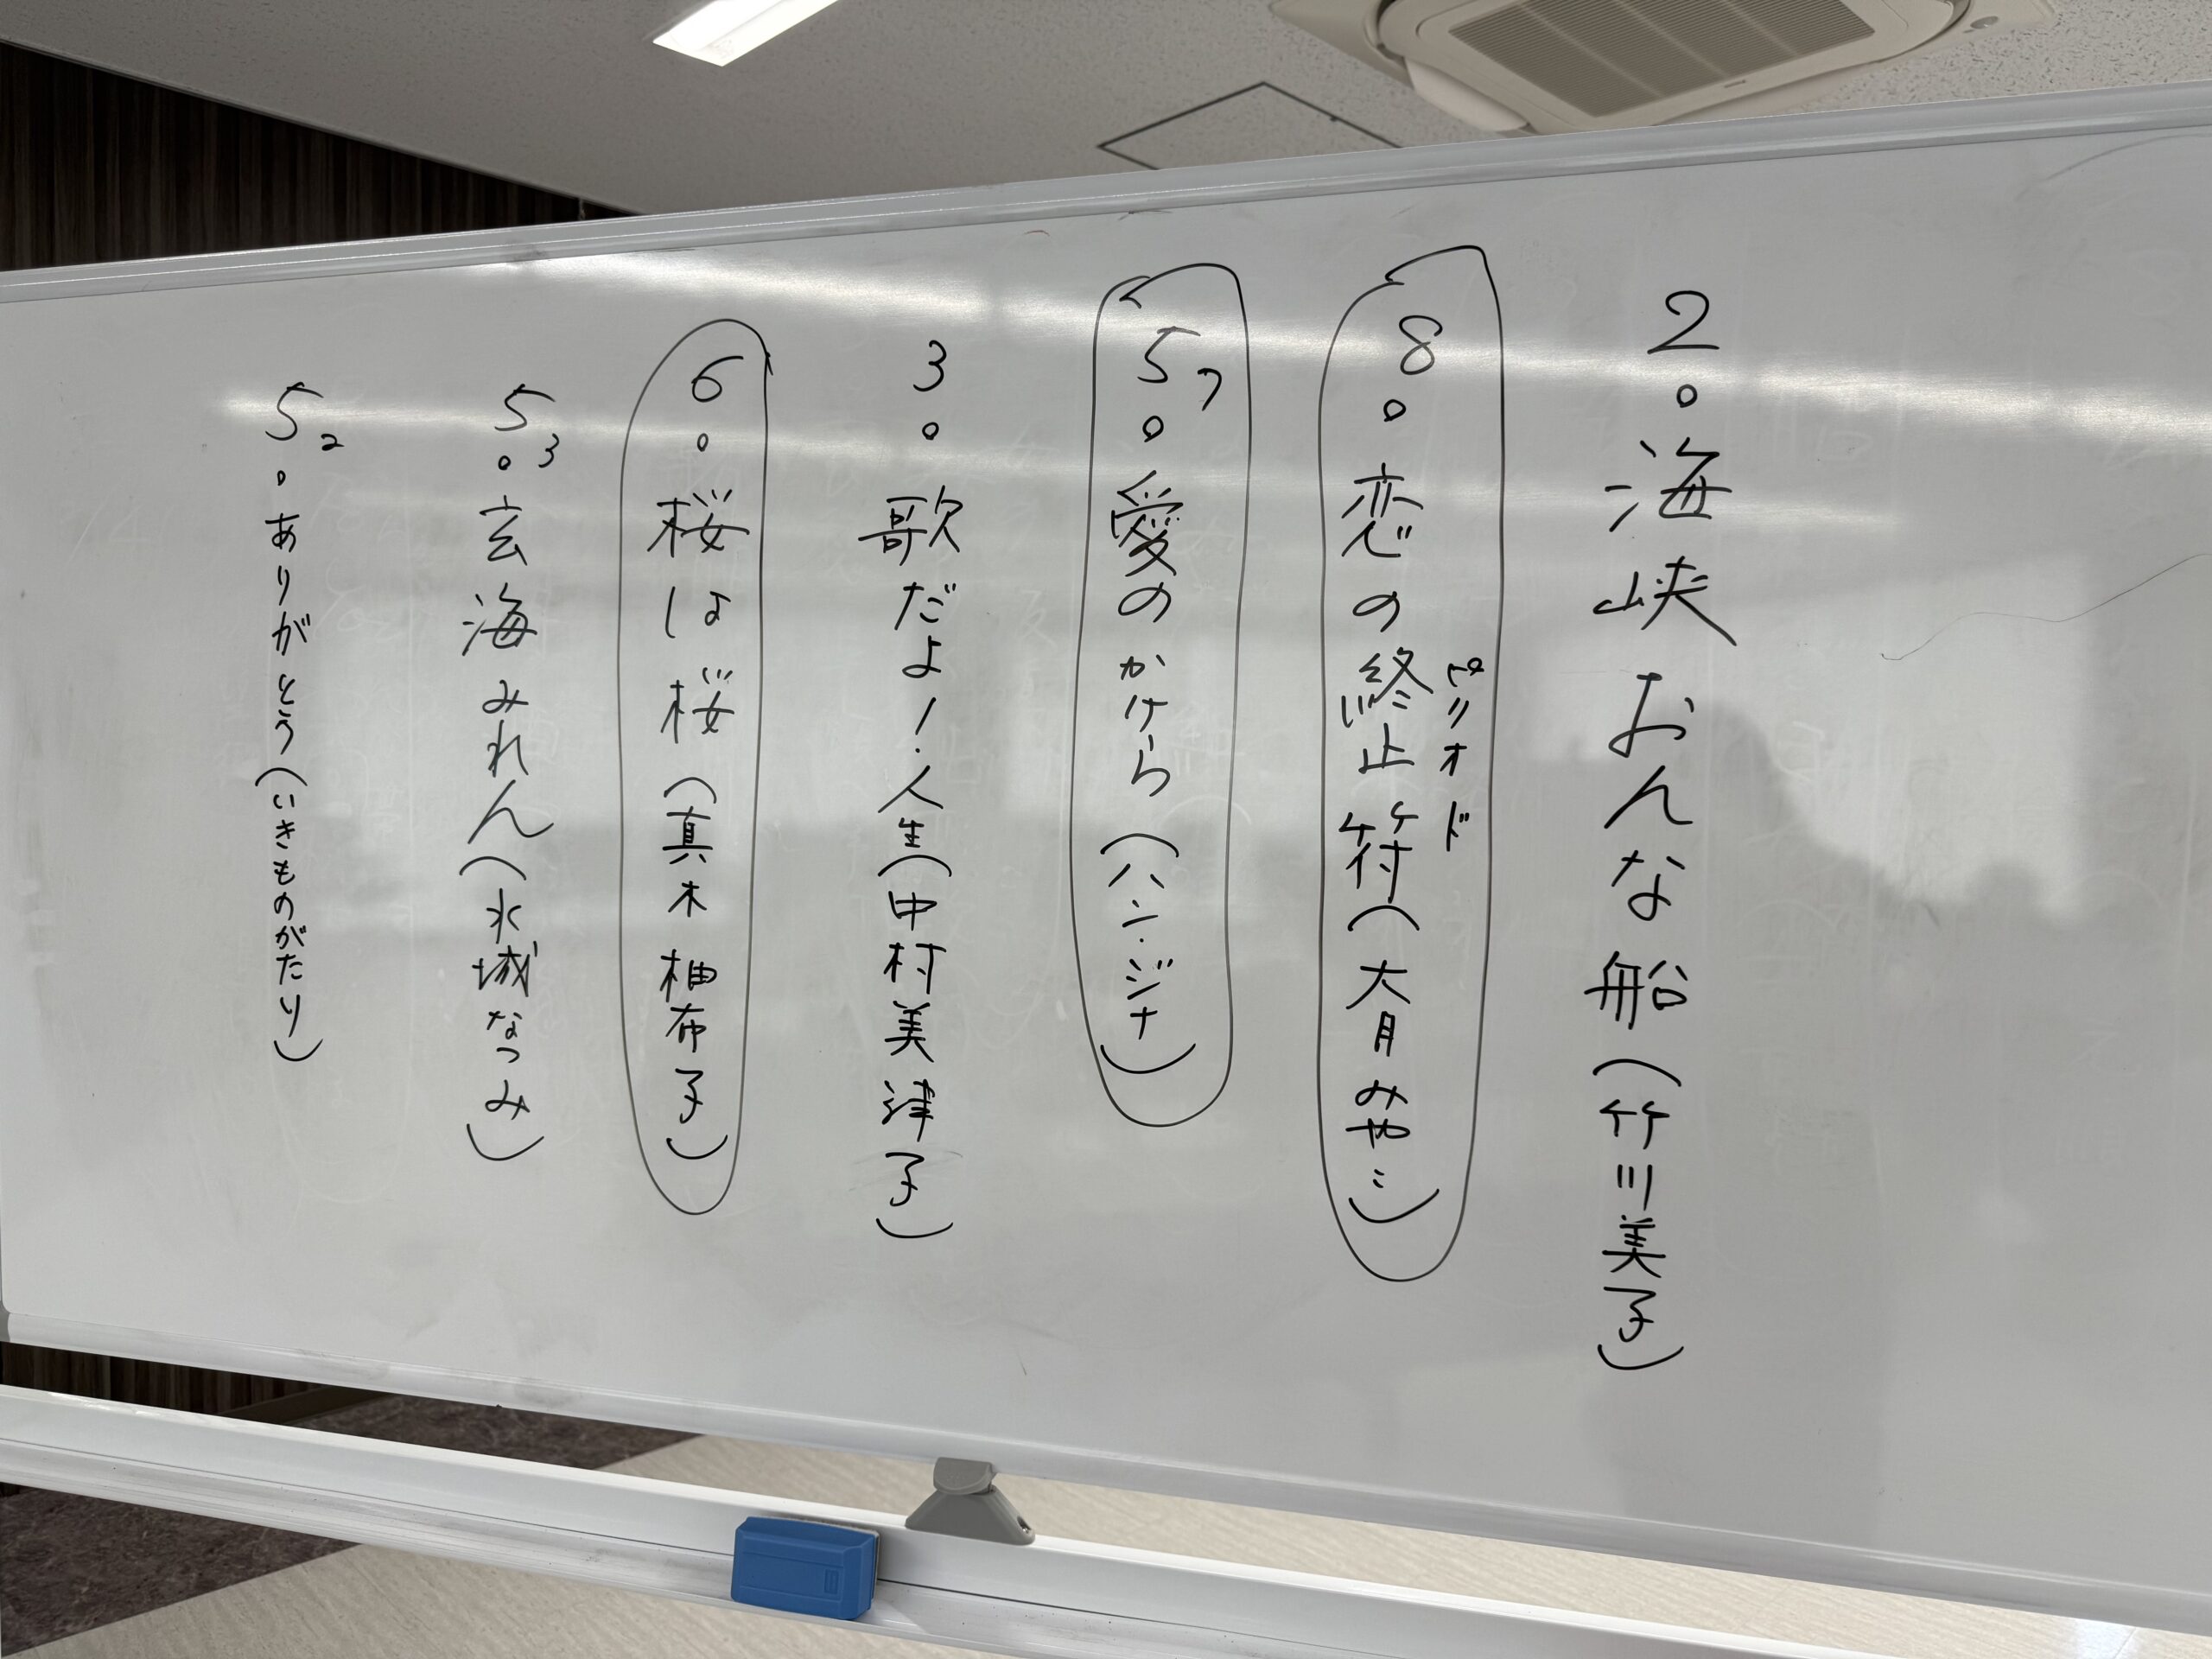 2。海峡おんな船(竹川美子)
8。恋の終止符(大月みやこ)
ピリオド
5 7。愛のかけら(ハン・ジナ)
3。歌だよ!人生(中村美津子)
6。桜は桜(真木柚布子)
5 3。玄海みれん(水城なつみ)
5 2。ありがとう(いきものがたり)